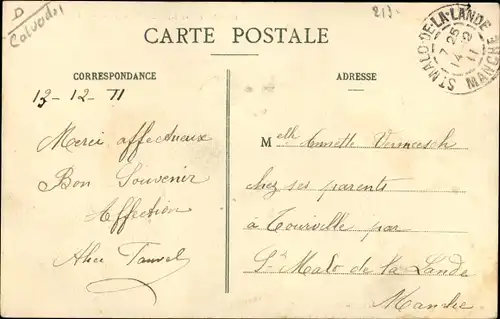 D
Calvados
213.
CARTE POSTALE
ST MALO-DE-LA-LANDE
7 25
14 12
11
MANCHE
CORRESPONDANCE
ADRESSE
13-12-11
Merci affectueux
Bon Souvenir
Affection
Alice
Melle Annette
chez ses parents
à Tourville par
St Malo de la Lande
Manche